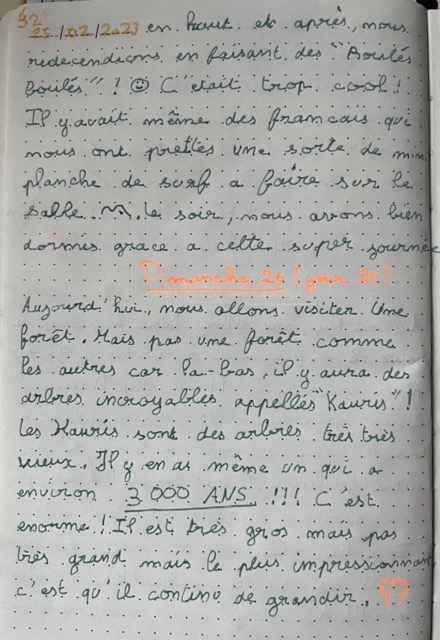 32
25/02/2023 en haut et après, nous
redescendions en faisant des "Roulés
boulés"! ☺ C'était trop cool!
Il y avait même des francais qui
nous ont prettés une sorte de mini
planche de surf a faire sur le
salle. Le soir, nous avons bien
dormis grace a cette super journée
Dimanche 26 (jour )
Aujourd'hui, nous allons visiter Une
forêt. Mais pas une forêt comme
les autres car la-bas, il y aura des
arbres incroyables appellés "Kauris"!
Les Kauris sont des arbres très très
vieux. Il y en as même un qui a
environ 3000 ANS !!! C'est
enorme! Il est très gros mais pas
très grand mais le plus impressionnant
c'est qu'il continu de grandir.